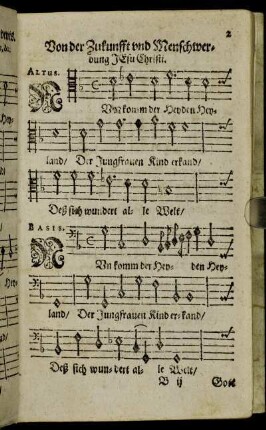 2
Von der Zukunfft vnd Menschwer-
dung JEsu Christi.
ALTUS.
NUn komm der Heyden Hey-
land/ Der Jungfrauen Kind erkand/
Deß sich wundert al- le Welt/
BASIS.
NUn komm der Hey- den Hey-
land/ Der Jungfrauen Kind er-kand/
Deß sich wun-dert al- le Welt/
B ij
Gott